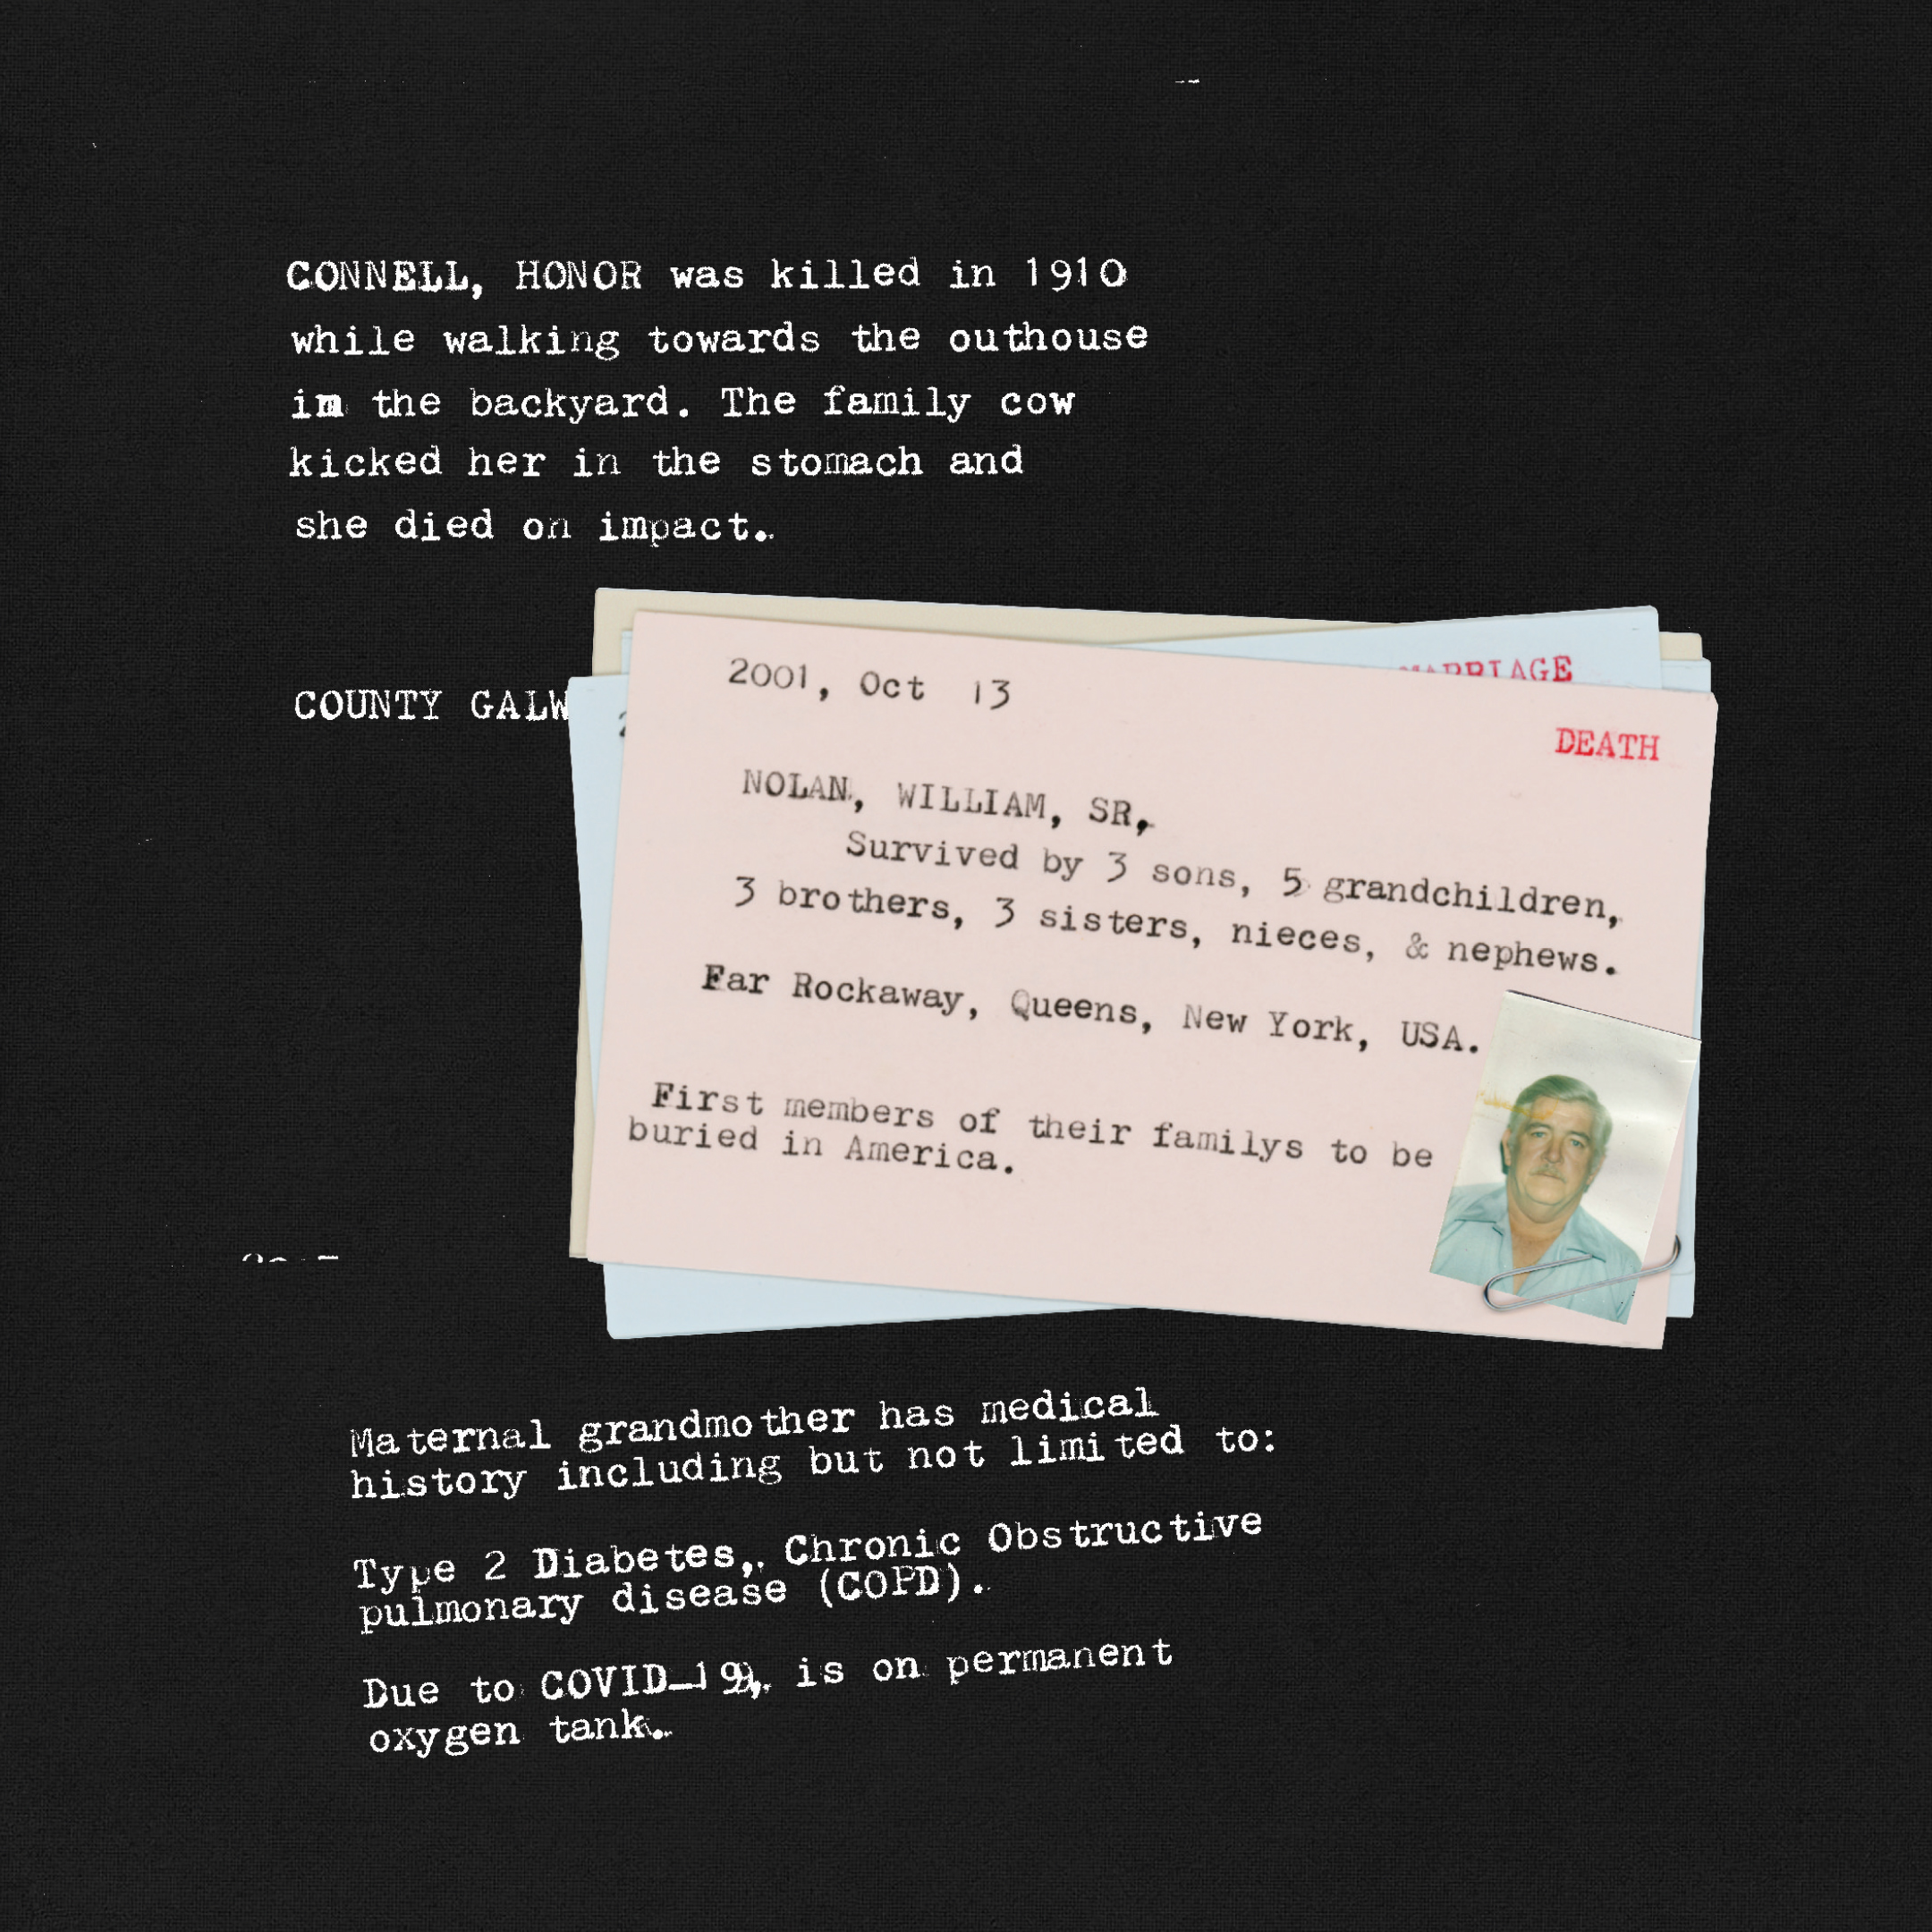 CONNELL, HONOR was killed in 1910
while walking towards the outhouse
in the backyard. The family cow
kicked her in the stomach and
she died on impact.
COUNTY GALW
MARRIAGE
2001, Oct 13
DEATH
NOLAN, WILLIAM, SR,
Survived by 3 sons, 5 grandchildren,
3 brothers, 3 sisters, nieces, & nephews.
Far Rockaway, Queens, New York, USA.
First members of their familys to be
buried in America.
Maternal grandmother has medical
history including but not limited to:
Type 2 Diabetes, Chronic Obstructive
pulmonary disease (COPD).
Due to COVID-19, is on permanent
oxygen tank.